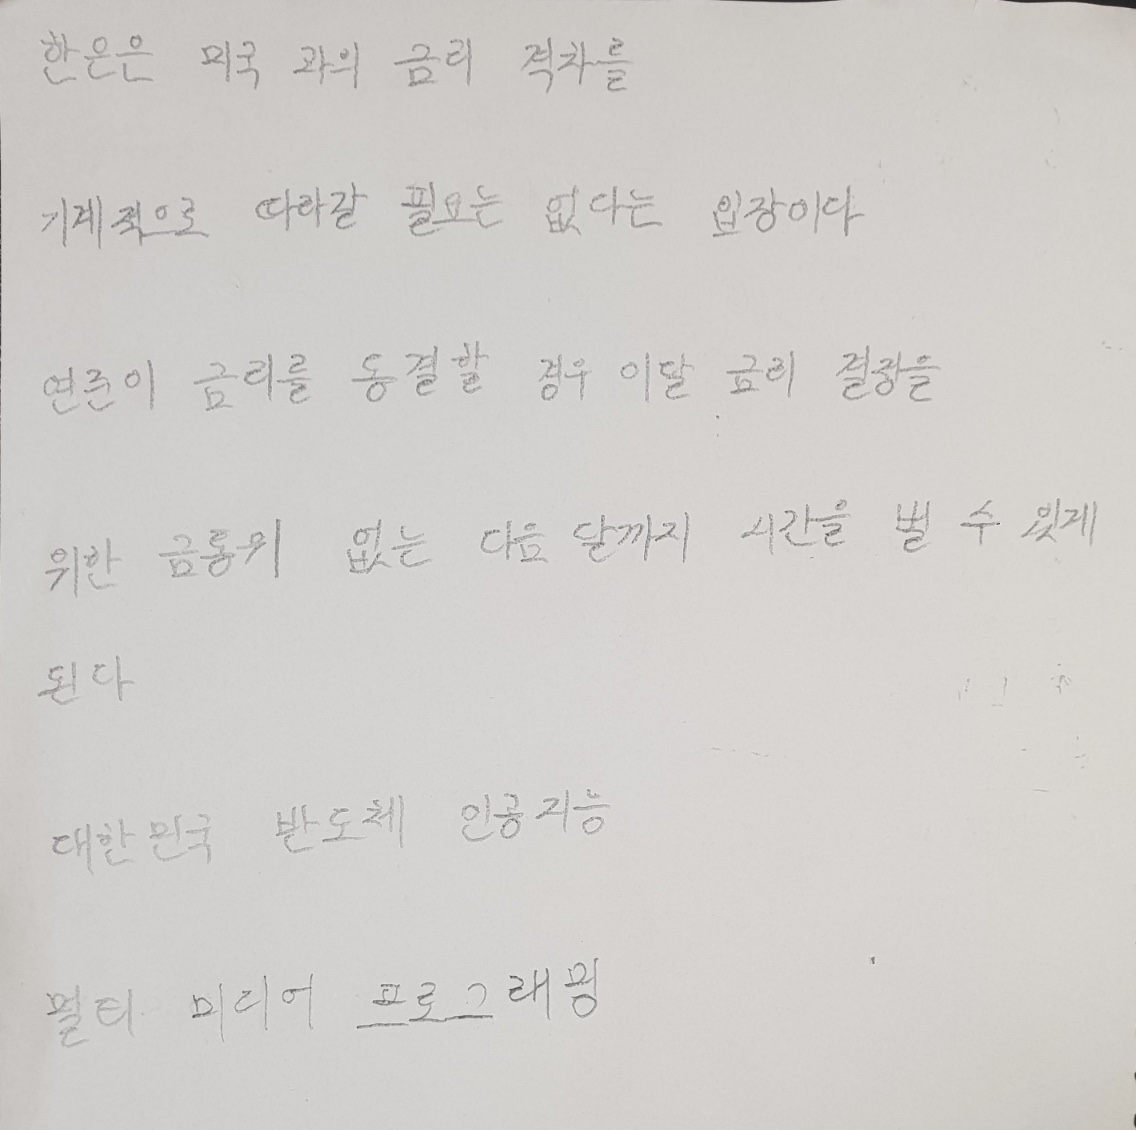 한은은 미국 과의 금리 격차를
기계적으로 따라갈 필요는 없다는 입장이다
연준이 금리를 동결할 경우 이달 금리 결정을
위한 금통위 없는 다음 달까지 시간을 벌 수 있게
된다
대한민국 반도체 인공지능
멀티 미디어 프로그래밍